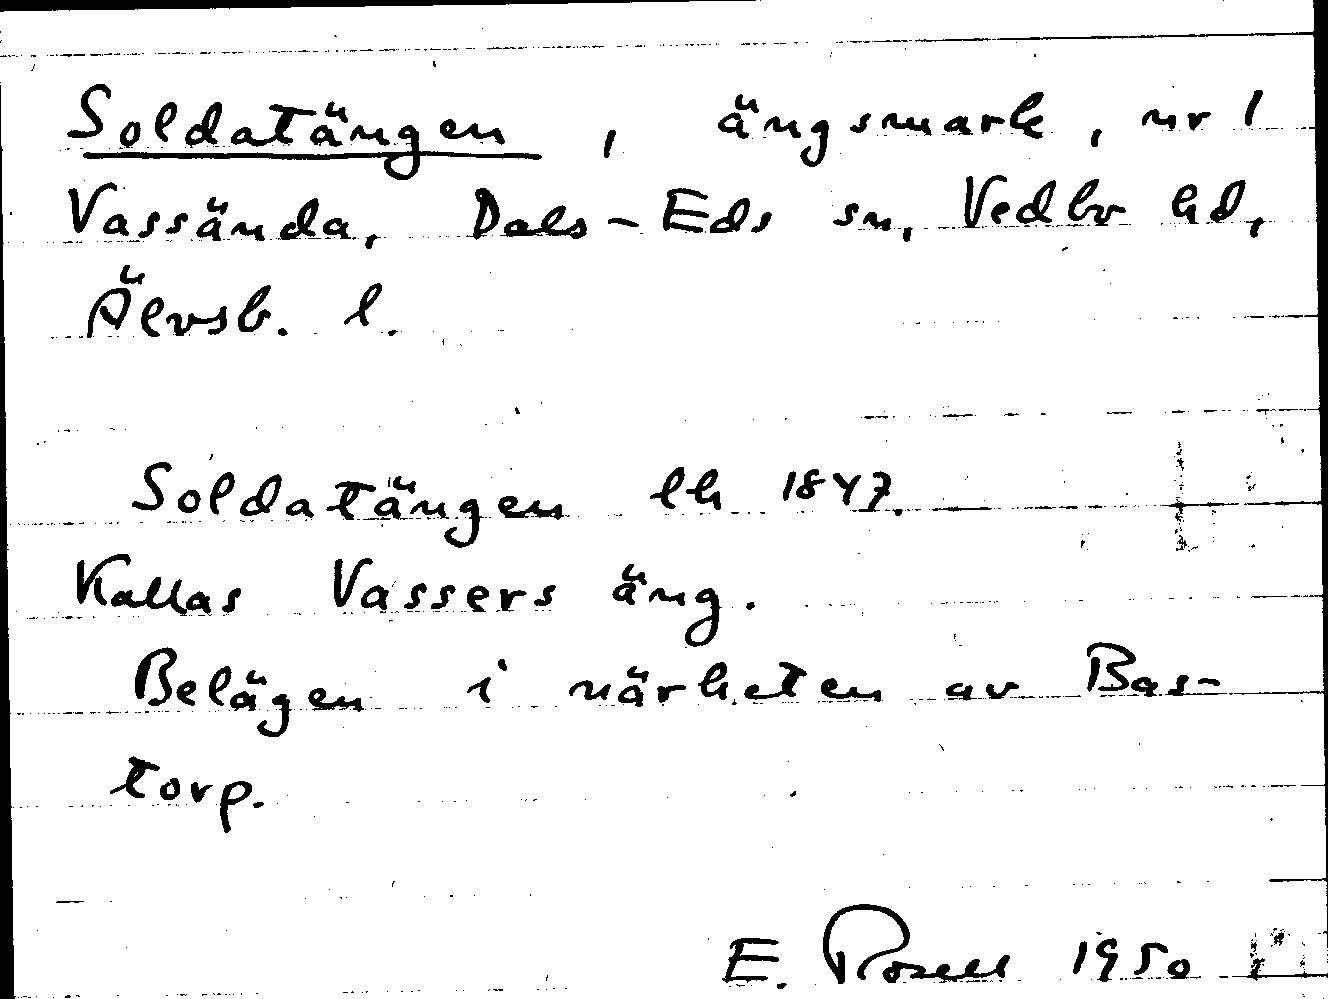 Soldatängen, ängsmark, nr 1
Vassända, Dals-Eds sn, Vedbo hd,
Älvsb. l.
Soldatängen lh 1847.
Kallas Vassers äng.
Belägen i närheten av Bas-
torp.
E. Rosell 1950